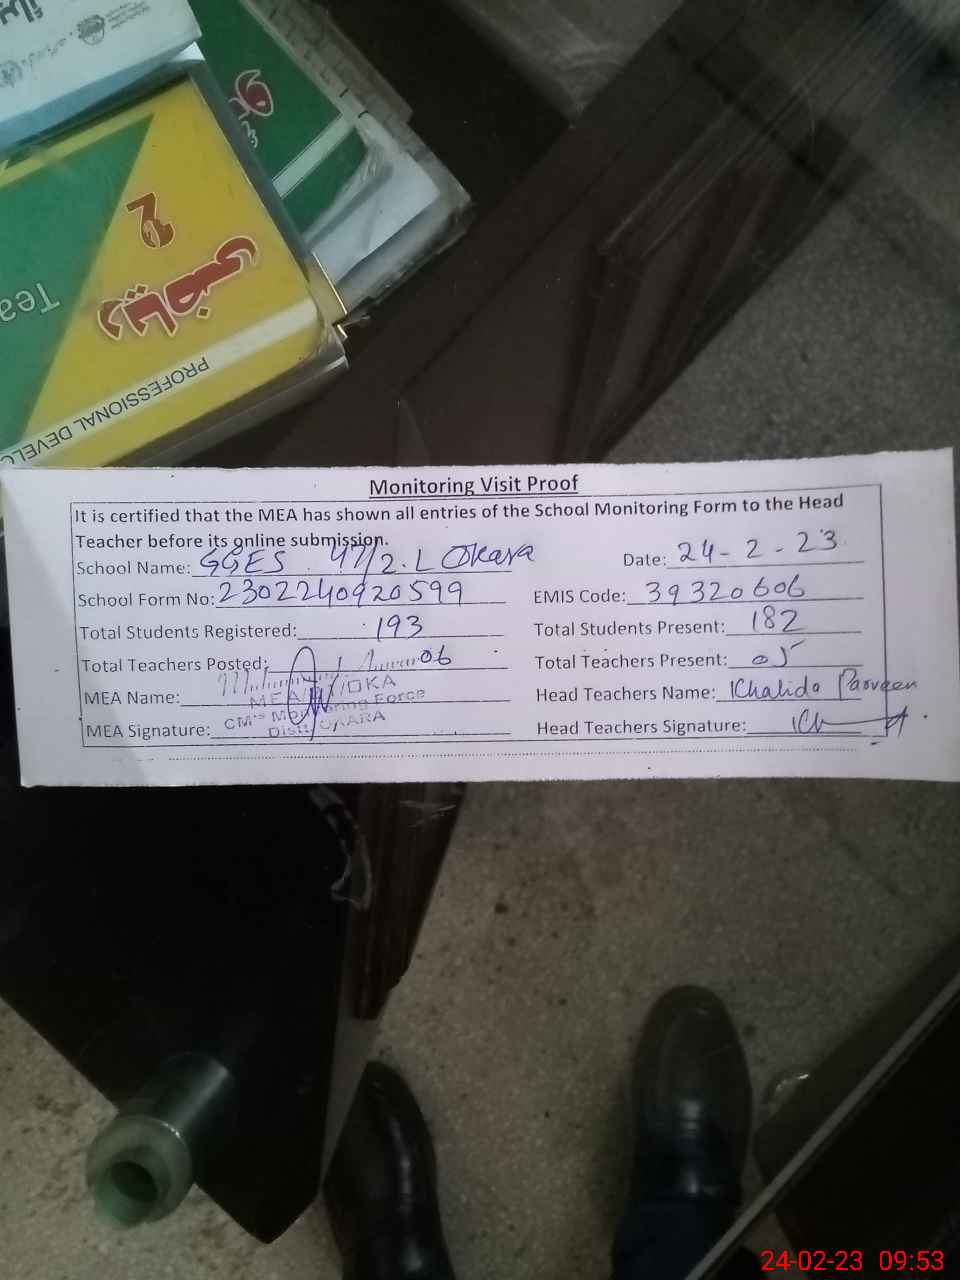 ریاضی
2
Tea
PROFESSIONAL DEVELO
Monitoring Visit Proof
It is certified that the MEA has shown all entries of the School Monitoring Form to the Head
Teacher before its online submission.
School Name: GGES 47/2.L Okara Date: 24-2-23
School Form No: 2302240920599 EMIS Code: 39320606
Total Students Registered: 193 Total Students Present: 182
Total Teachers Posted: 06 Total Teachers Present: 05
MEA Name: MEA/ /OKA Head Teachers Name: Khalida Parveen
MEA Signature: CM's Monitoring Force Head Teachers Signature:
Distt OKARA
24-02-23 09:53